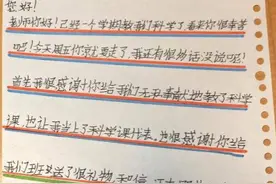 您好!
老师你好!已经一个学期教我们科学了,看来你很辛苦
吧!今天周五你就要走了,我还有很多话没说呢!
首先我很感谢你当给我们无私奉献地教了科学
课,也让我当上了科学课代表,也很感谢你当给
我们班送了很礼物和信